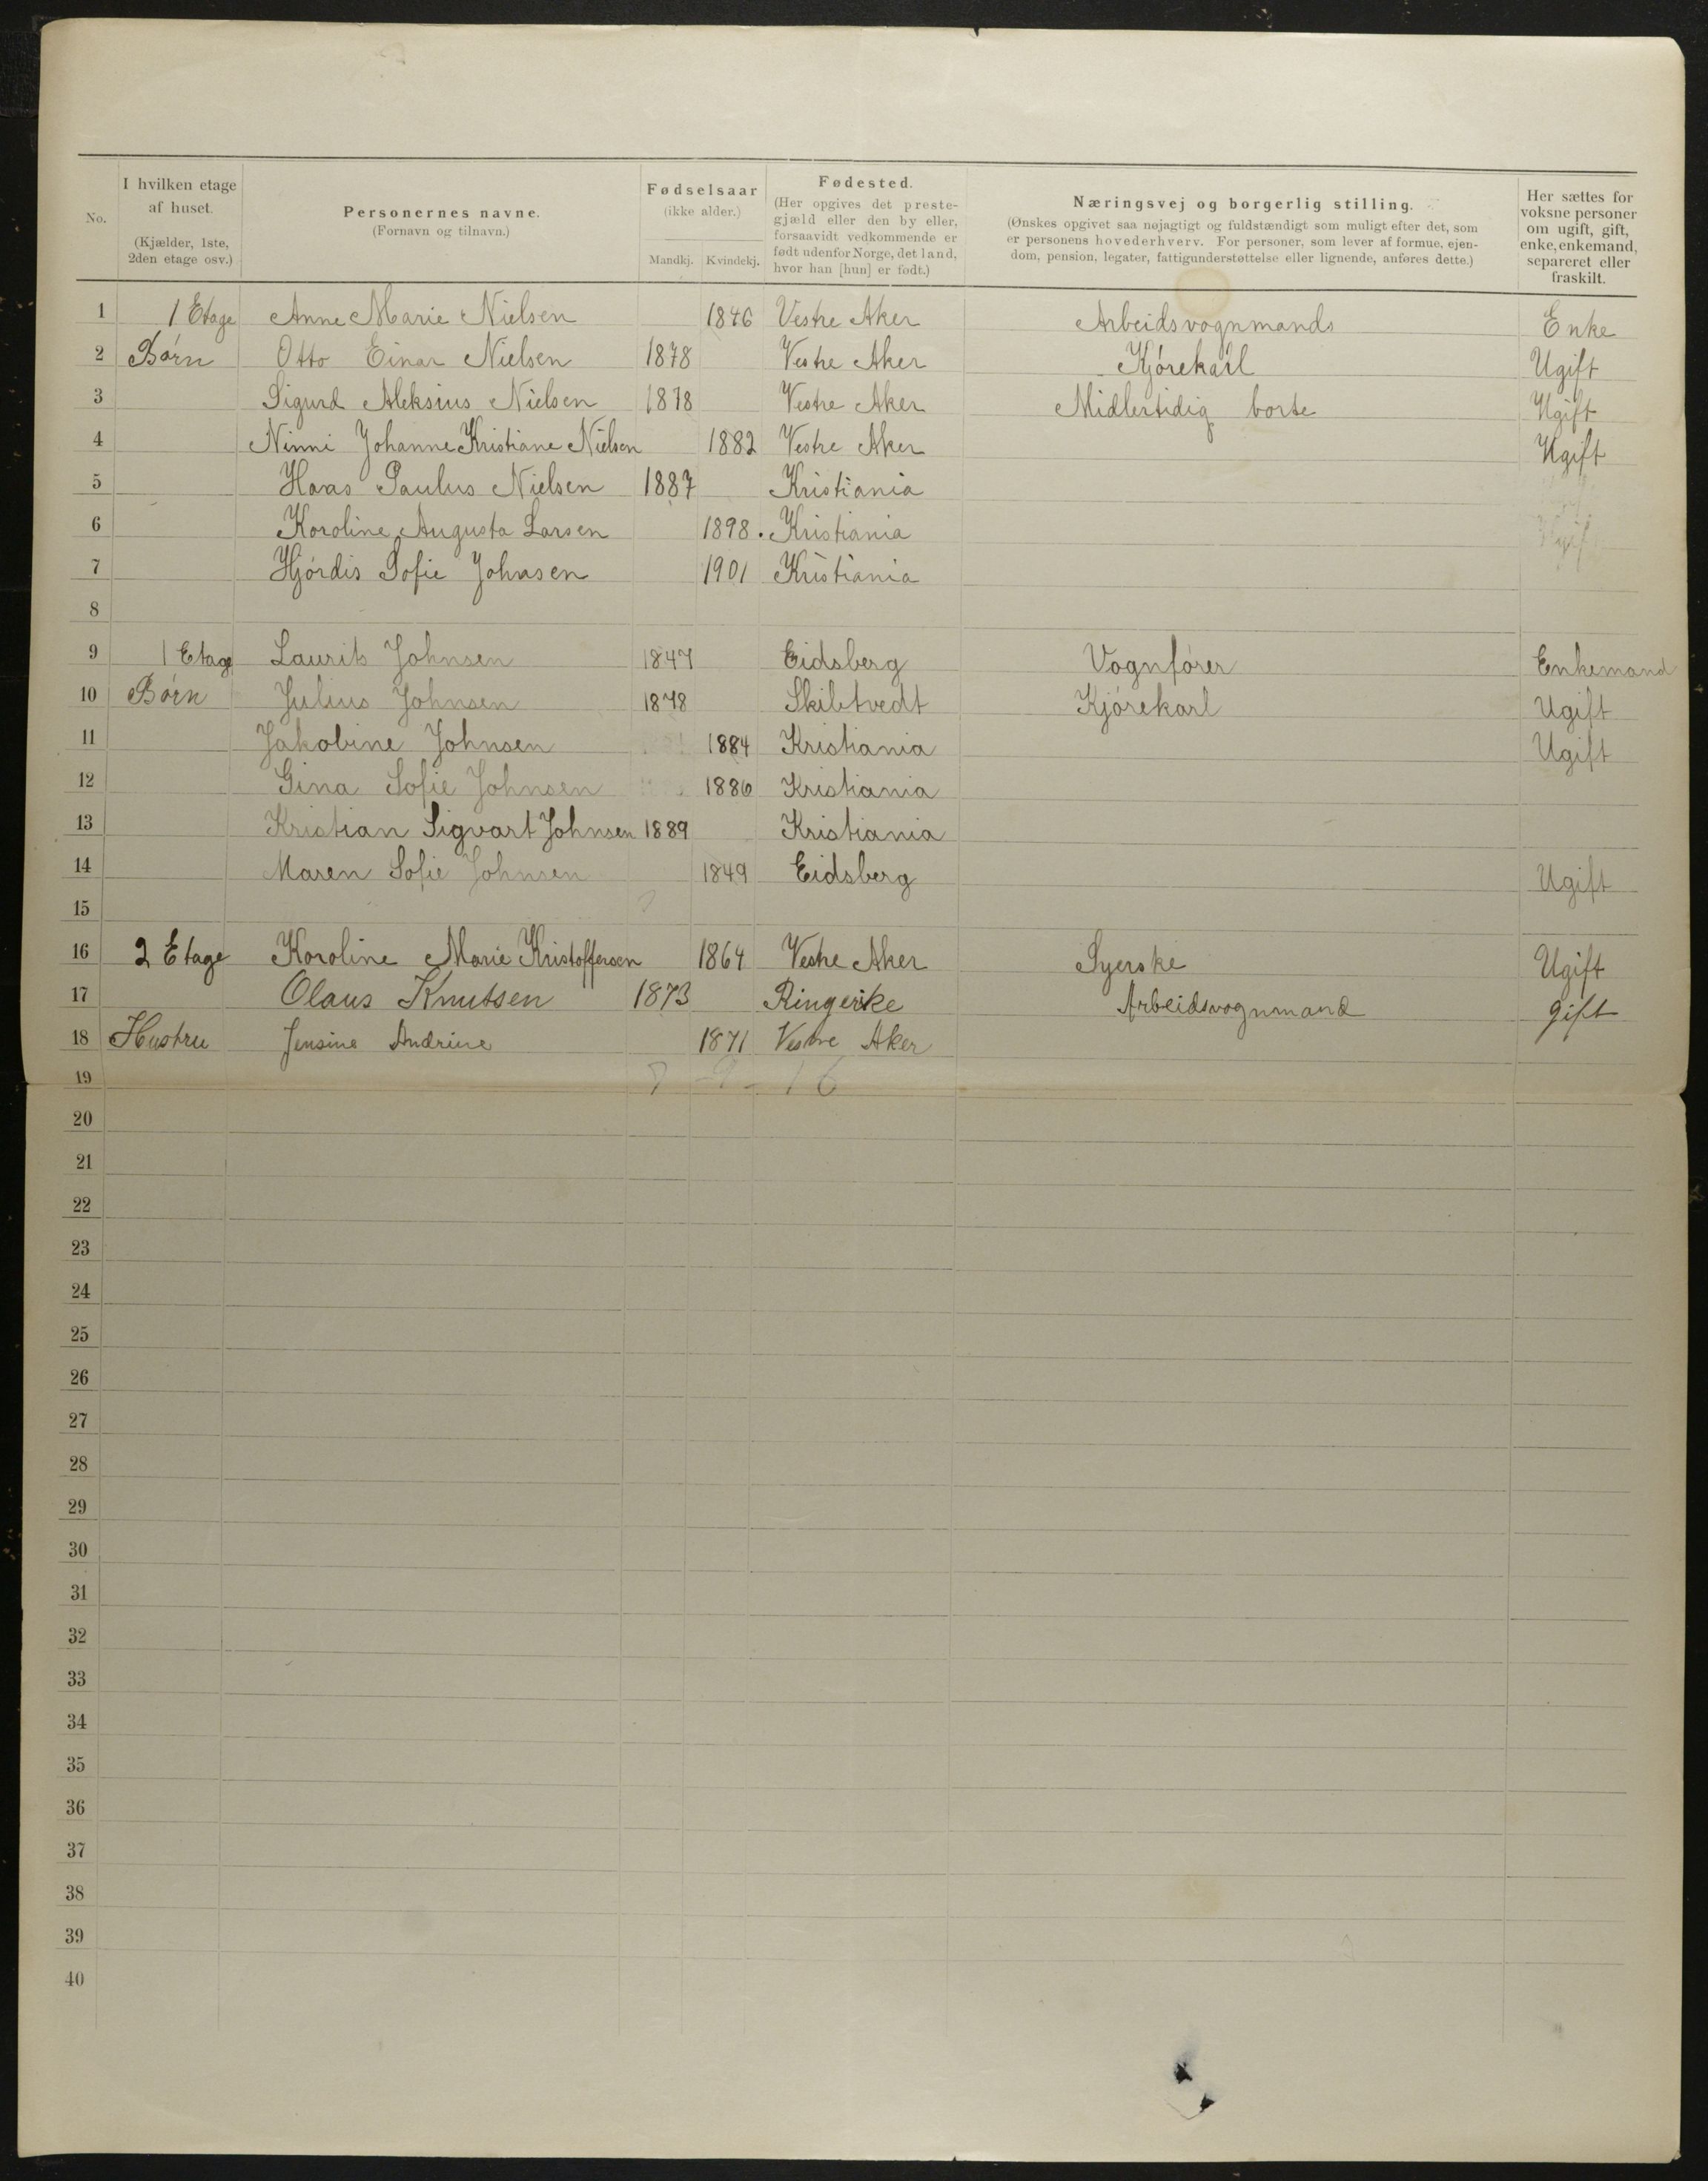 No.
I hvilken etage af huset. (Kjælder, 1ste, 2den etage osv.)
Personernes navne. (Fornavn og tilnavn.)
Fødselsaar (ikke alder.) Mandkj. Kvindekj.
Fødested. (Her opgives det prestegjæld eller den by eller, forsaavidt vedkommende er født udenfor Norge, det land, hvor han [hun] er født.)
Næringsvej og borgerlig stilling. (Ønskes opgivet saa nøjagtigt og fuldstændigt som muligt efter det, som er personens hovederhverv. For personer, som lever af formue, ejendom, pension, legater, fattigunderstøttelse eller lignende, anføres dette.)
Her sættes for voksne personer om ugift, gift, enke, enkemand, separeret eller fraskilt.
1 1 Etage Anne Marie Nielsen 1846 Vestre Aker Arbeidsvognmands Enke
2 Børn Otto Einar Nielsen 1878 Vestre Aker Kjørekarl Ugift
3 Sigurd Aleksius Nielsen 1878 Vestre Aker Midlertidig borte Ugift
4 Ninni Johanne Kristiane Nielsen 1882 Vestre Aker Ugift
5 Hans Paulus Nielsen 1887 Kristiania
6 Karoline Augusta Larsen 1898 Kristiania
7 Hjørdis Sofie Johnsen 1901 Kristiania
8
9 1 Etage Laurits Johnsen 1847 Eidsberg Vognfører Enkemand
10 Børn Julius Johnsen 1878 Skibtvedt Kjørekarl Ugift
11 Jakobine Johnsen 1884 Kristiania Ugift
12 Gina Sofie Johnsen 1886 Kristiania
13 Kristian Sigvart Johnsen 1889 Kristiania
14 Maren Sofie Johnsen 1849 Eidsberg Ugift
15
16 2 Etage Karoline Marie Kristoffersen 1864 Vestre Aker Syerske Ugift
17 Olaus Knutsen 1873 Ringerike Arbeidsvognmand gift
18 Hustru Jensine Andrine 1871 Vestre Aker
19 7 - 9 - 16
20
21
22
23
24
25
26
27
28
29
30
31
32
33
34
35
36
37
38
39
40